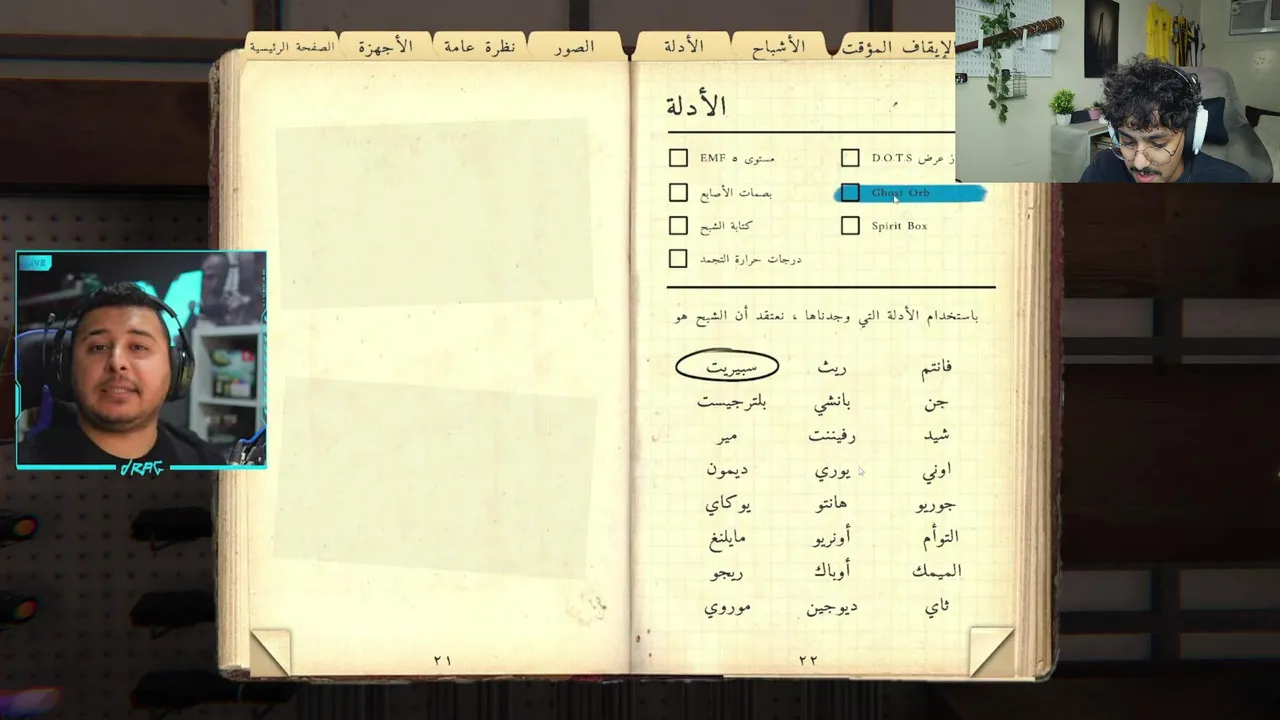 الصفحة الرئيسية
الأجهزة
نظرة عامة
الصور
الأدلة
الأشباح
الإيقاف المؤقت
الأدلة
EMF مستوى ٥
عرض D.O.T.S
بصمات الأصابع
Ghost Orb
كتابة الشبح
Spirit Box
درجات حرارة التجمد
باستخدام الأدلة التي وجدناها ، نعتقد أن الشبح هو
سبيريت ريث فانتم
بلترجيست بانشي جن
مير رفيننت شيد
ديمون يوري اوني
يوكاي هانتو جوريو
مايلنغ أونريو التوأم
ريجو أوباك الميمك
موروي ديوجين ثاي
٢١
٢٢
LIVE
dRAG